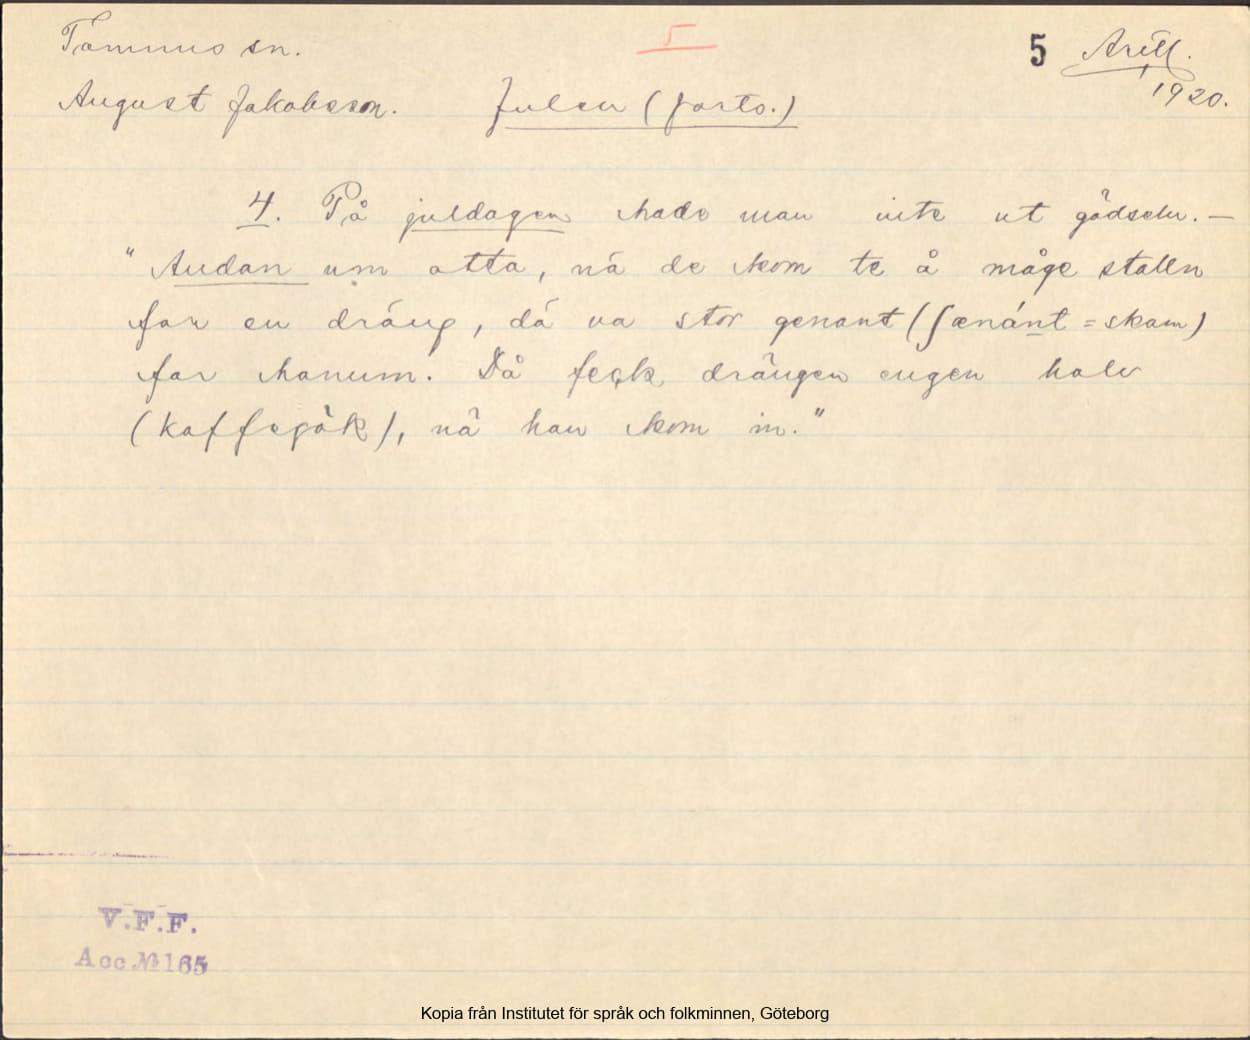 Tommus sn. 5 5 Arill.
August Jakobsson. Julen (forts.) 1920.
4. På juldagen hade man inte ut gödseln. —
"Andan um otta, nä de kom te å måge stalln
far en dräng, dä va stor genant (ʃænánt = skam)
far hanum. Då feck drängen engen halv
(kaffegök), nä han kom in."
V.F.F.
Acc № 165
Kopia från Institutet för språk och folkminnen, Göteborg